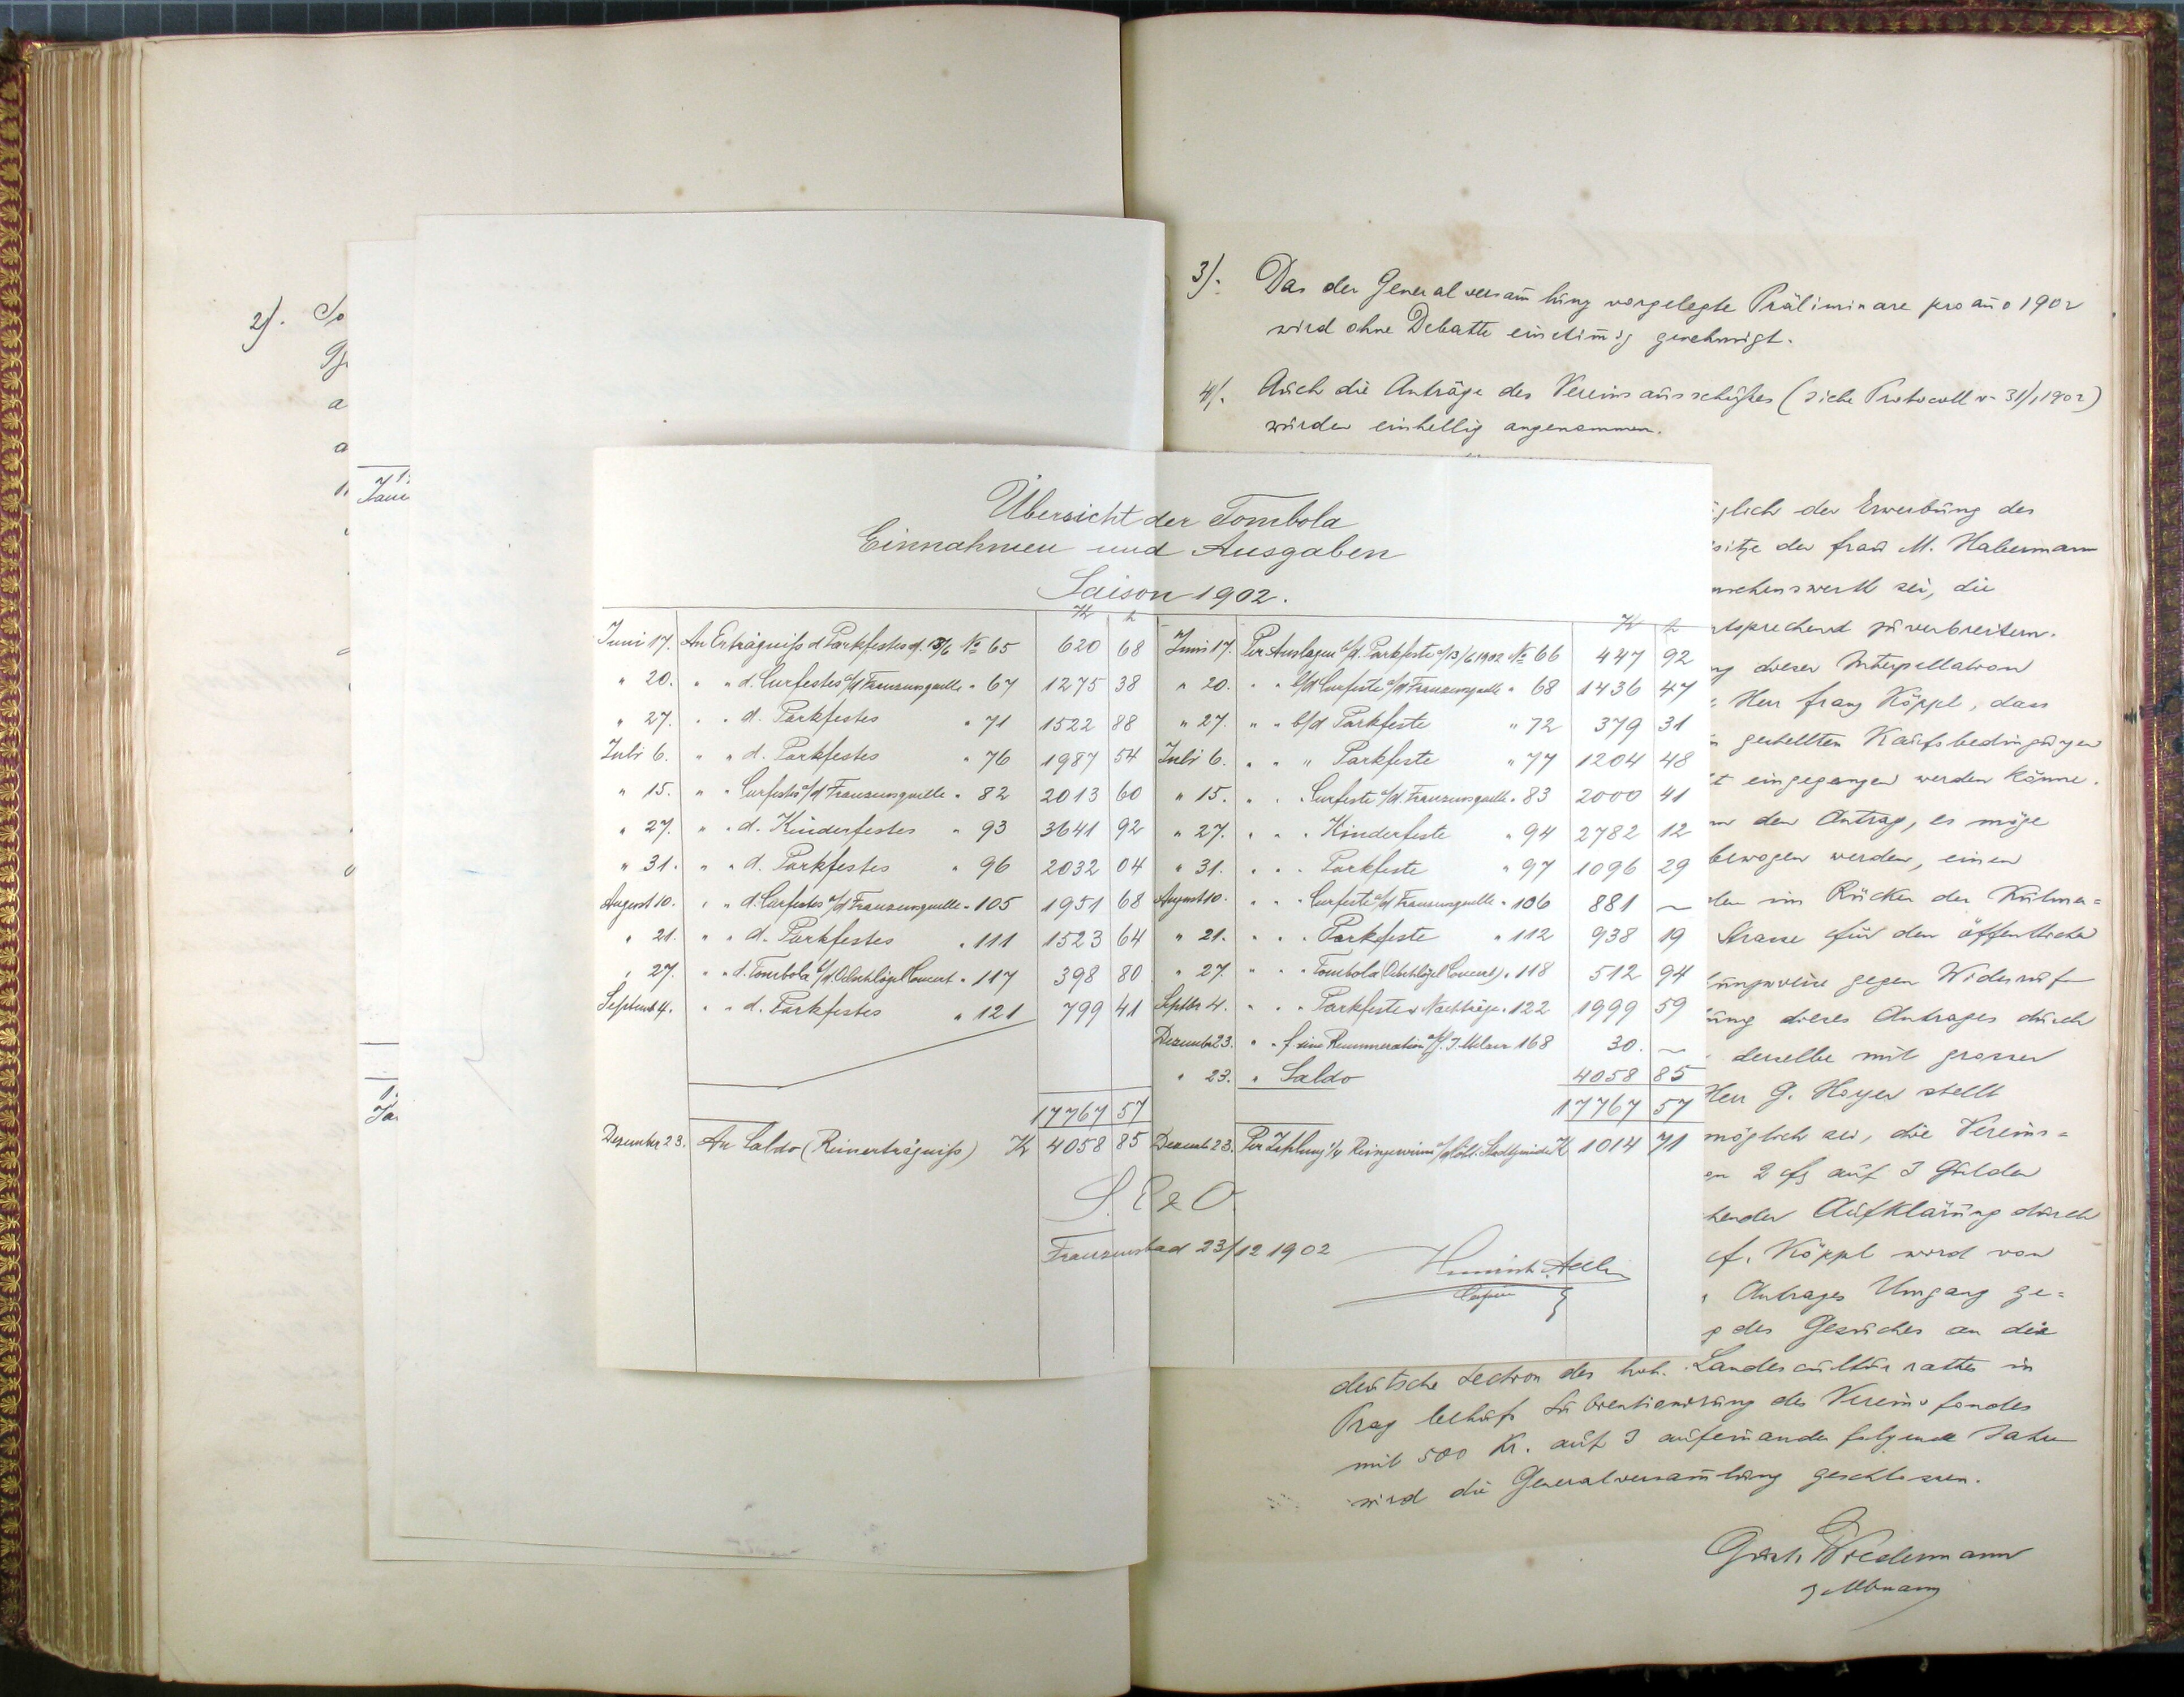 2). So
a
a
3). Das der Generalversam̄lung vorgelegte Präliminare pro an̄o 1902
wird ohne Debatte einstim̄ig genehmigt.
4). Auch die Anträge des Vereinsausschußes (siehe Protocoll v. 31/1 1902)
wurden einhellig angenommen.
Übersicht der Tombola
Einnahmen und Ausgaben
Saison 1902.
K h K h
Juni 17. An Erträgniß d Parkfestes d. 13/6 No 65 620 68 Juni 17. Per Auslagen b/d. Parkfeste a/13/6 1902 No 66 447 92
" 20. " " d. Curfestes a/d Franzensquelle " 67 1275 38 " 20. " " b/d Curfeste a/d Franzensquelle " 68 1436 47
" 27. " " d. Parkfestes " 71 1522 88 " 27. " " b/d Parkfeste " 72 379 31
Juli 6. " " d. Parkfestes " 76 1987 54 Juli 6. " " " Parkfeste " 77 1204 48
" 15. " " Curfestes a/d Franzensquelle " 82 2013 60 " 15. " " " Curfeste a/d. Franzensquelle " 83 2000 41
" 27. " " d. Kinderfestes " 93 3641 92 " 27. " " " Kinderfeste " 94 2782 12
" 31. " " d. Parkfestes " 96 2032 04 " 31. " " " Parkfeste " 97 1096 29
August 10. " " d. Curfestes a/d Franzensquelle " 105 1951 68 August 10. " " " Curfeste a/d Franzensquelle " 106 881 ~
" 21. " " d. Parkfestes " 111 1523 64 " 21. " " " Parkfeste " 112 938 19
" 27. " " d. Tombola b/d Concert " 117 398 80 " 27. " " " Tombola Concert) " 118 512 94
Septemb 4. " " d. Parkfestes " 121 799 41 Septbr 4. " " " Parkfeste u Nachträge " 122 1999 59
Dezember 23. " " f. eine Remuneration 168 30. ~
" 23. " Saldo 4058 85
17767 57 17767 57
Dezember 23. An Saldo (Reinerträgniß) K 4058 85 Dezemb. 23. Per Zahlung 1/4 Reingewinn K 1014 71
S. E & O.
Franzensbad 23/12 1902
glich der Erwerbung des
sitze der Frau M. Habermann
nschenswerth sei, die
tsprechend zu verbreitern.
ng dieser Interpellation
Herr Franz Köppl, dass
gestellten Kaufsbedingungen
t eingegangen werden könne.
den Antrag, es möge
bewogen werden, einen
im Rücken der Kulmer=
Strasse für den öffentlichen
ungsweise gegen Widerruf
ung dieses Antrages durch
derselbe mit grosser
Herr G. Hoyer stellt
möglich sei, die Vereins=
en 2 fl auf 3 Gulden
hender Aufklärung durch
F. Köppl wird von
Antrages Umgang ge=
g des Gesuches an die
deutsche Section des hoh. Landesculturrathes in
Prag behufs Subventionirung des Vereinsfondes
mit 500 Kr. auf 3 aufeinander folgende Jahre
wird die Generalversam̄lung geschlossen.
Wiedermann
Obmann